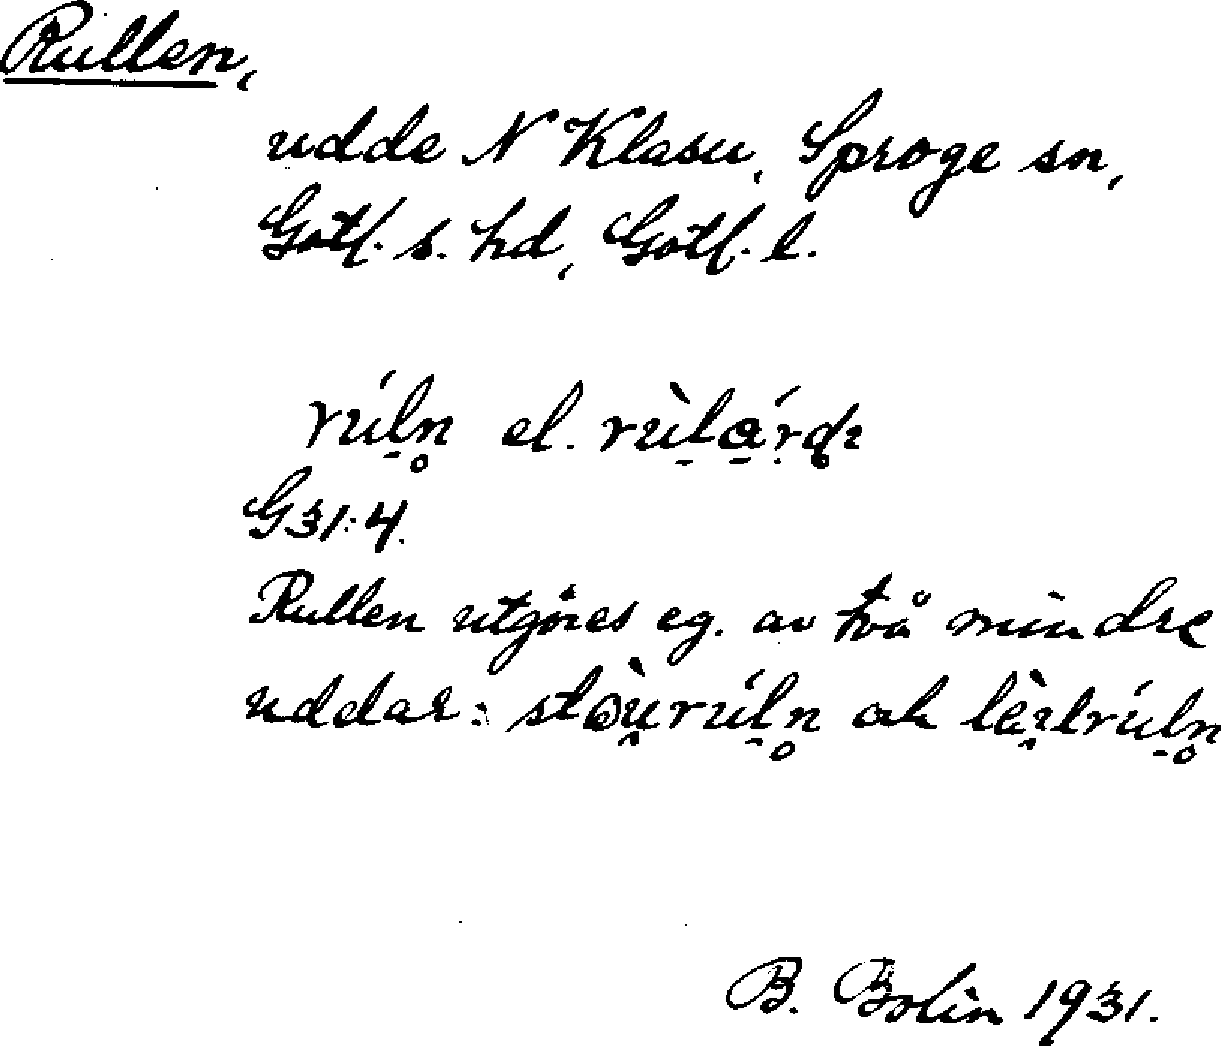 Rullen,
udde N Klasu, Sproge sn,
Gotl. s. hd, Gotl. l.
rúl̠n̥ el.
G31:4.
Rullen utgöres eg. av två mindre
uddar: stòu̯rúl̠n̥ och
B. Bolin 1931.